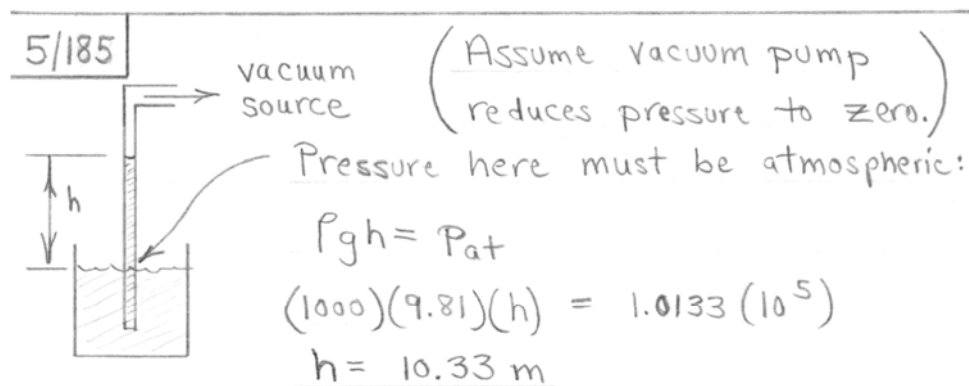 5/185
vacuum
source
(Assume vacuum pump
reduces pressure to zero.)
Pressure here must be atmospheric:
h
ρgh = Pat
(1000)(9.81)(h) = 1.0133 (10^5)
h = 10.33 m